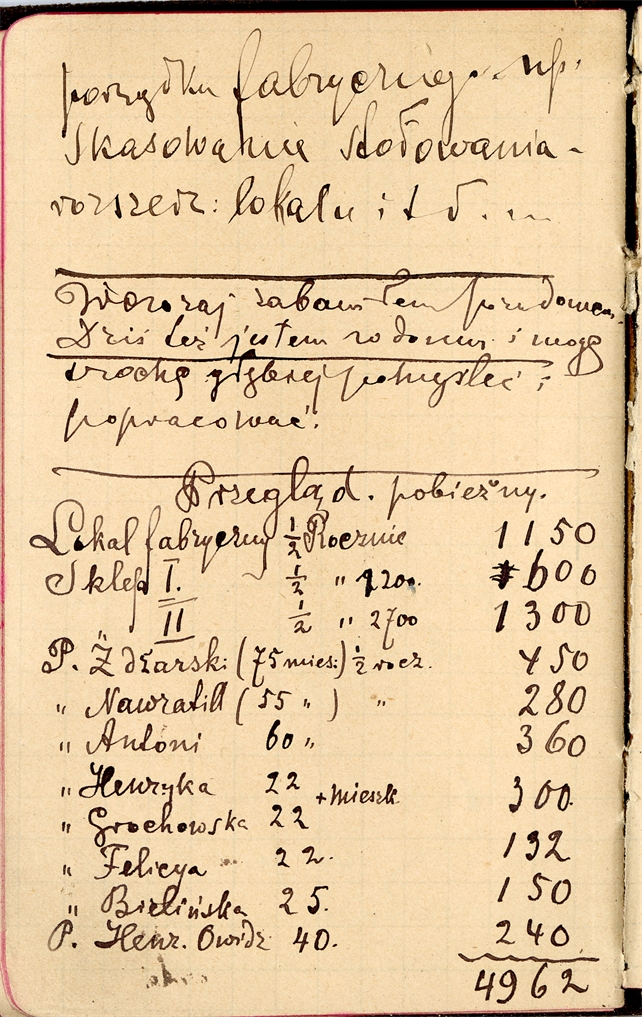 porządku fabrycznego. np.
Skasowanie stołowania -
rozszerz: lokalu i t d.
Wczoraj
Dziś też jestem w domu i mogę
trochę głębiej pomyśleć i
popracować.
Przegląd. pobieżny.
Lokal fabryczny 1/2 Rocznie 1150
Sklep I. 1/2 " 1200. 600
" II 1/2 " 2700 1300
P. Żdżarski (75 mies:) 1/2 rocz. 450
" Nawratill (55 " ) " 280
" Antoni 60 " 360
" Henryka 22 + mieszk. 300.
" Grochowska 22
" Felicya 22. 132
" Bielińska 25. 150
P. Henr. Owidz 40. 240
4962